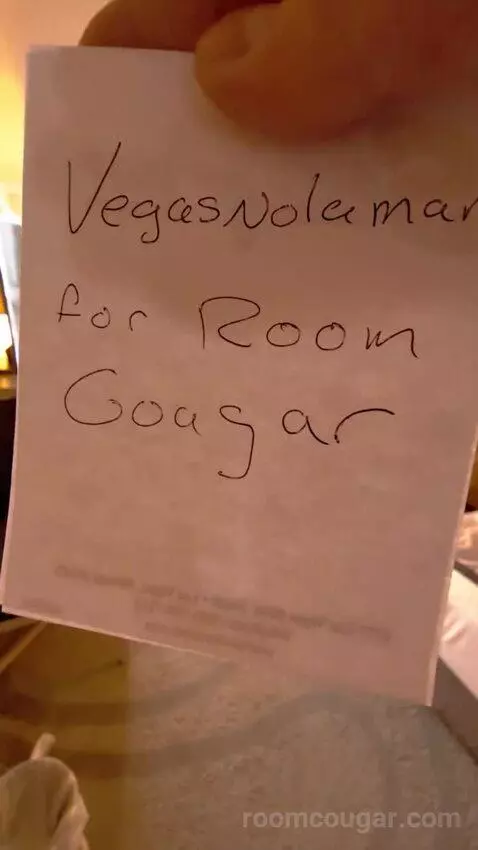 VegasNolamar
for Room
Cougar
roomcougar.com